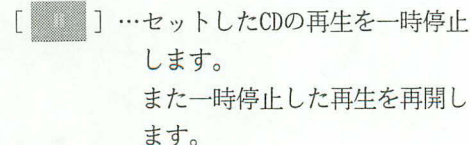 [ ⏸ ] …セットしたCDの再生を一時停止
します。
また一時停止した再生を再開し
ます。